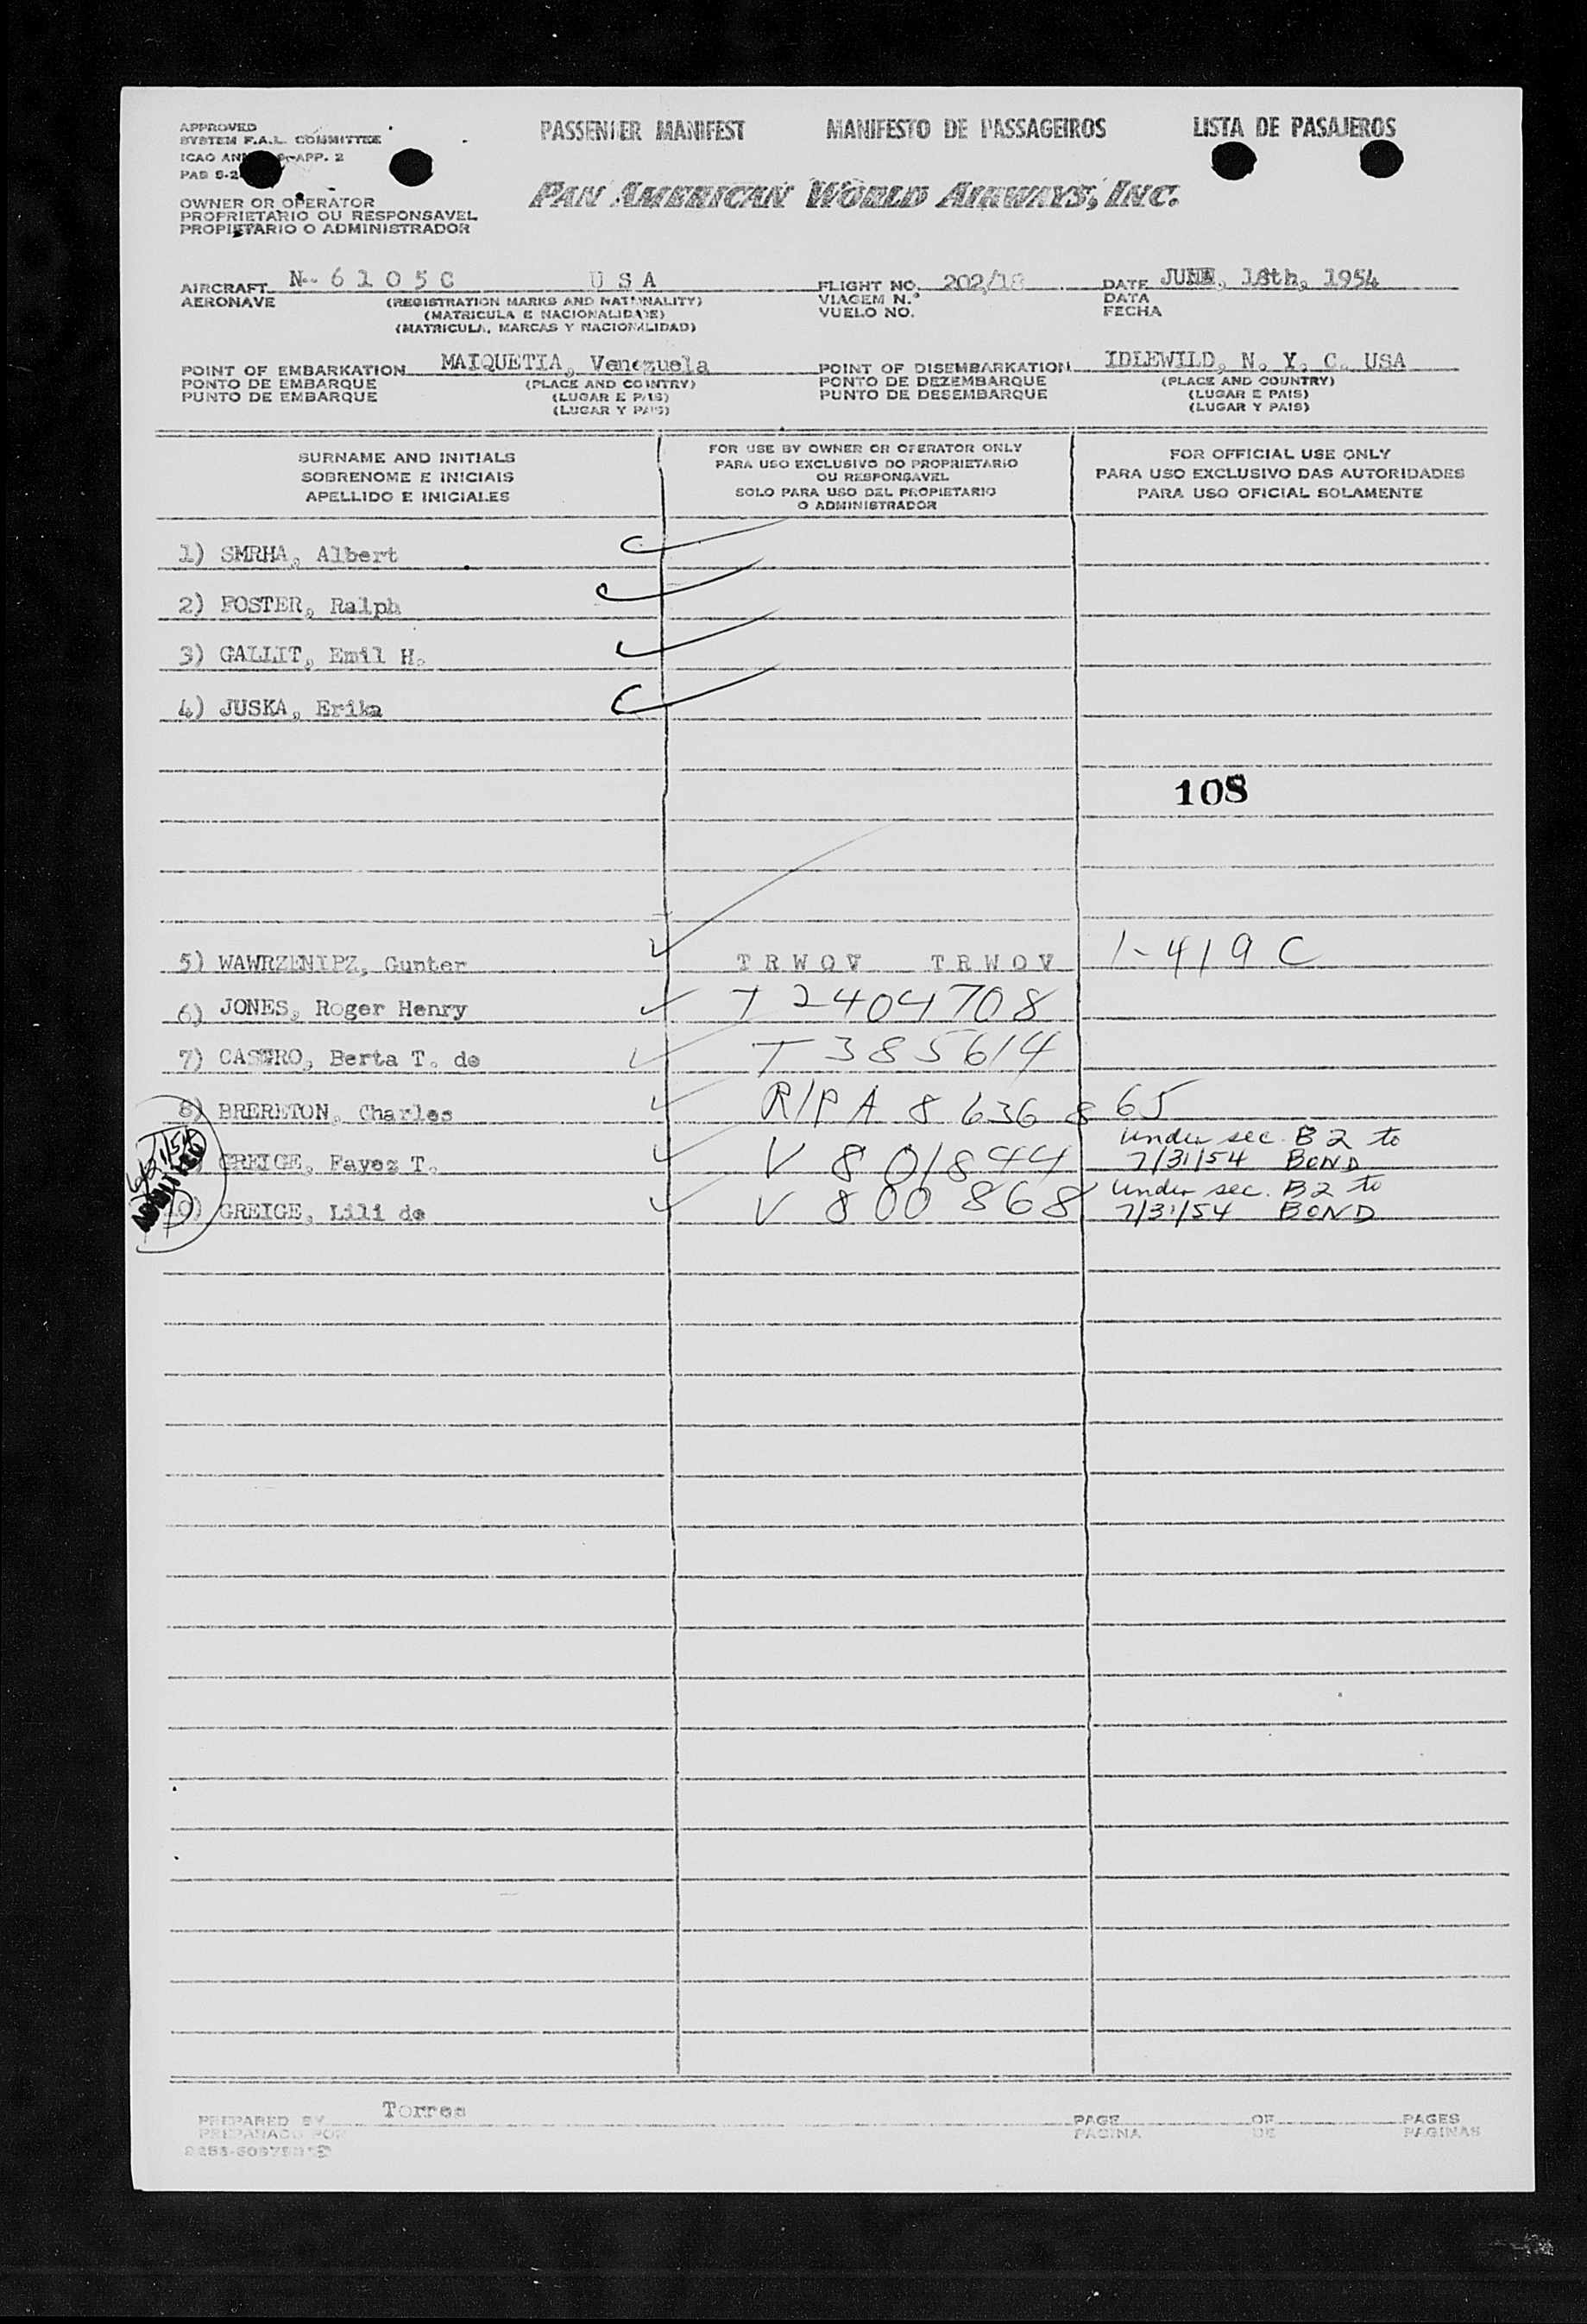 APPROVED
SYSTEM F.A.L. COMMITTEE
ICAO APP. 2
PASSENGER MANIFEST MANIFESTO DE PASSAGEIROS LISTA DE PASAJEROS
PAN AMERICAN WORLD AIRWAYS, INC.
OWNER OR OPERATOR
PROPRIETARIO OU RESPONSAVEL
PROPIETARIO O ADMINISTRADOR
AIRCRAFT N-6105C USA FLIGHT NO. 202/18 DATE JUNE, 18th, 1954
AERONAVE (REGISTRATION MARKS AND NATIONALITY) VIAGEM N.º DATA
(MATRICULA E NACIONALIDADE) VUELO NO. FECHA
(MATRICULA, MARCAS Y NACIONALIDAD)
POINT OF EMBARKATION MAIQUETIA, Venezuela POINT OF DISEMBARKATION IDLEWILD, N. Y. C. USA
PONTO DE EMBARQUE (PLACE AND COUNTRY) PONTO DE DEZEMBARQUE (PLACE AND COUNTRY)
PUNTO DE EMBARQUE (LUGAR E PAIS) PUNTO DE DESEMBARQUE (LUGAR E PAIS)
(LUGAR Y PAIS) (LUGAR Y PAIS)
SURNAME AND INITIALS
SOBRENOME E INICIAIS
APELLIDO E INICIALES
FOR USE BY OWNER OR OPERATOR ONLY
PARA USO EXCLUSIVO DO PROPRIETARIO
OU RESPONSAVEL
SOLO PARA USO DEL PROPIETARIO
O ADMINISTRADOR
FOR OFFICIAL USE ONLY
PARA USO EXCLUSIVO DAS AUTORIDADES
PARA USO OFICIAL SOLAMENTE
1) SMRHA, Albert
2) FOSTER, Ralph
3) GALLIT, Emil H.
4) JUSKA, Erika
108
5) WAWRZENIPZ, Gunter TRWOV TRWOV 1-419 C
6) JONES, Roger Henry T 2404708
7) CASTRO, Berta T. de T 385614
8) BRERETON, Charles R/P A 8 636 865
GREIGE, Fayez T. V 801844 Under sec. B2 to
7/31/54 BOND
GREIGE, Lili de V 800868 Under sec. B2 to
7/31/54 BOND
ADMITTED
PREPARED BY Torres PAGE OF PAGES
PREPARADO POR PAGINA DE PAGINAS